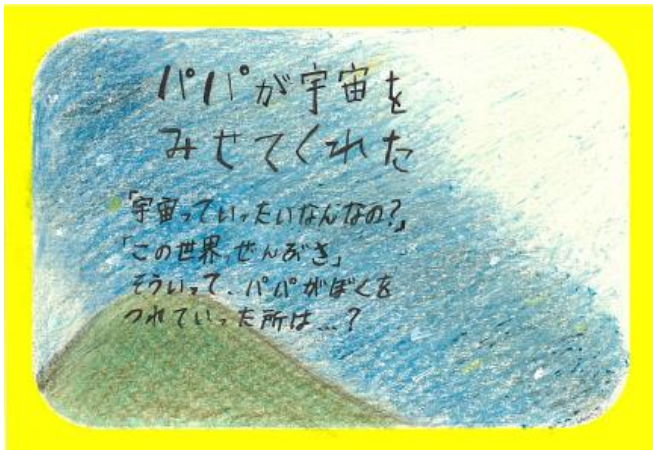 パパが宇宙を
みせてくれた
「宇宙っていったいなんなの?」
「この世界、ぜんぶさ」
そういって、パパがぼくを
つれていった所は…?